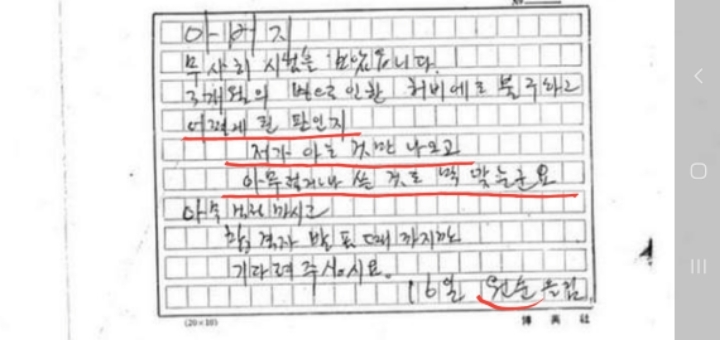 아버지
무사히 시험을 보았읍니다.
3개월의 병으로 인한 허비에도 불구하고
어떻게 된 판인지
저가 아는 것만 나오고
아무렇거나 쓴 것도 딱 맞는군요
아무 마시고
합격자 발표 때까지만
기다려 주십시요.
16일 원순 올림
(20×10)
博英社